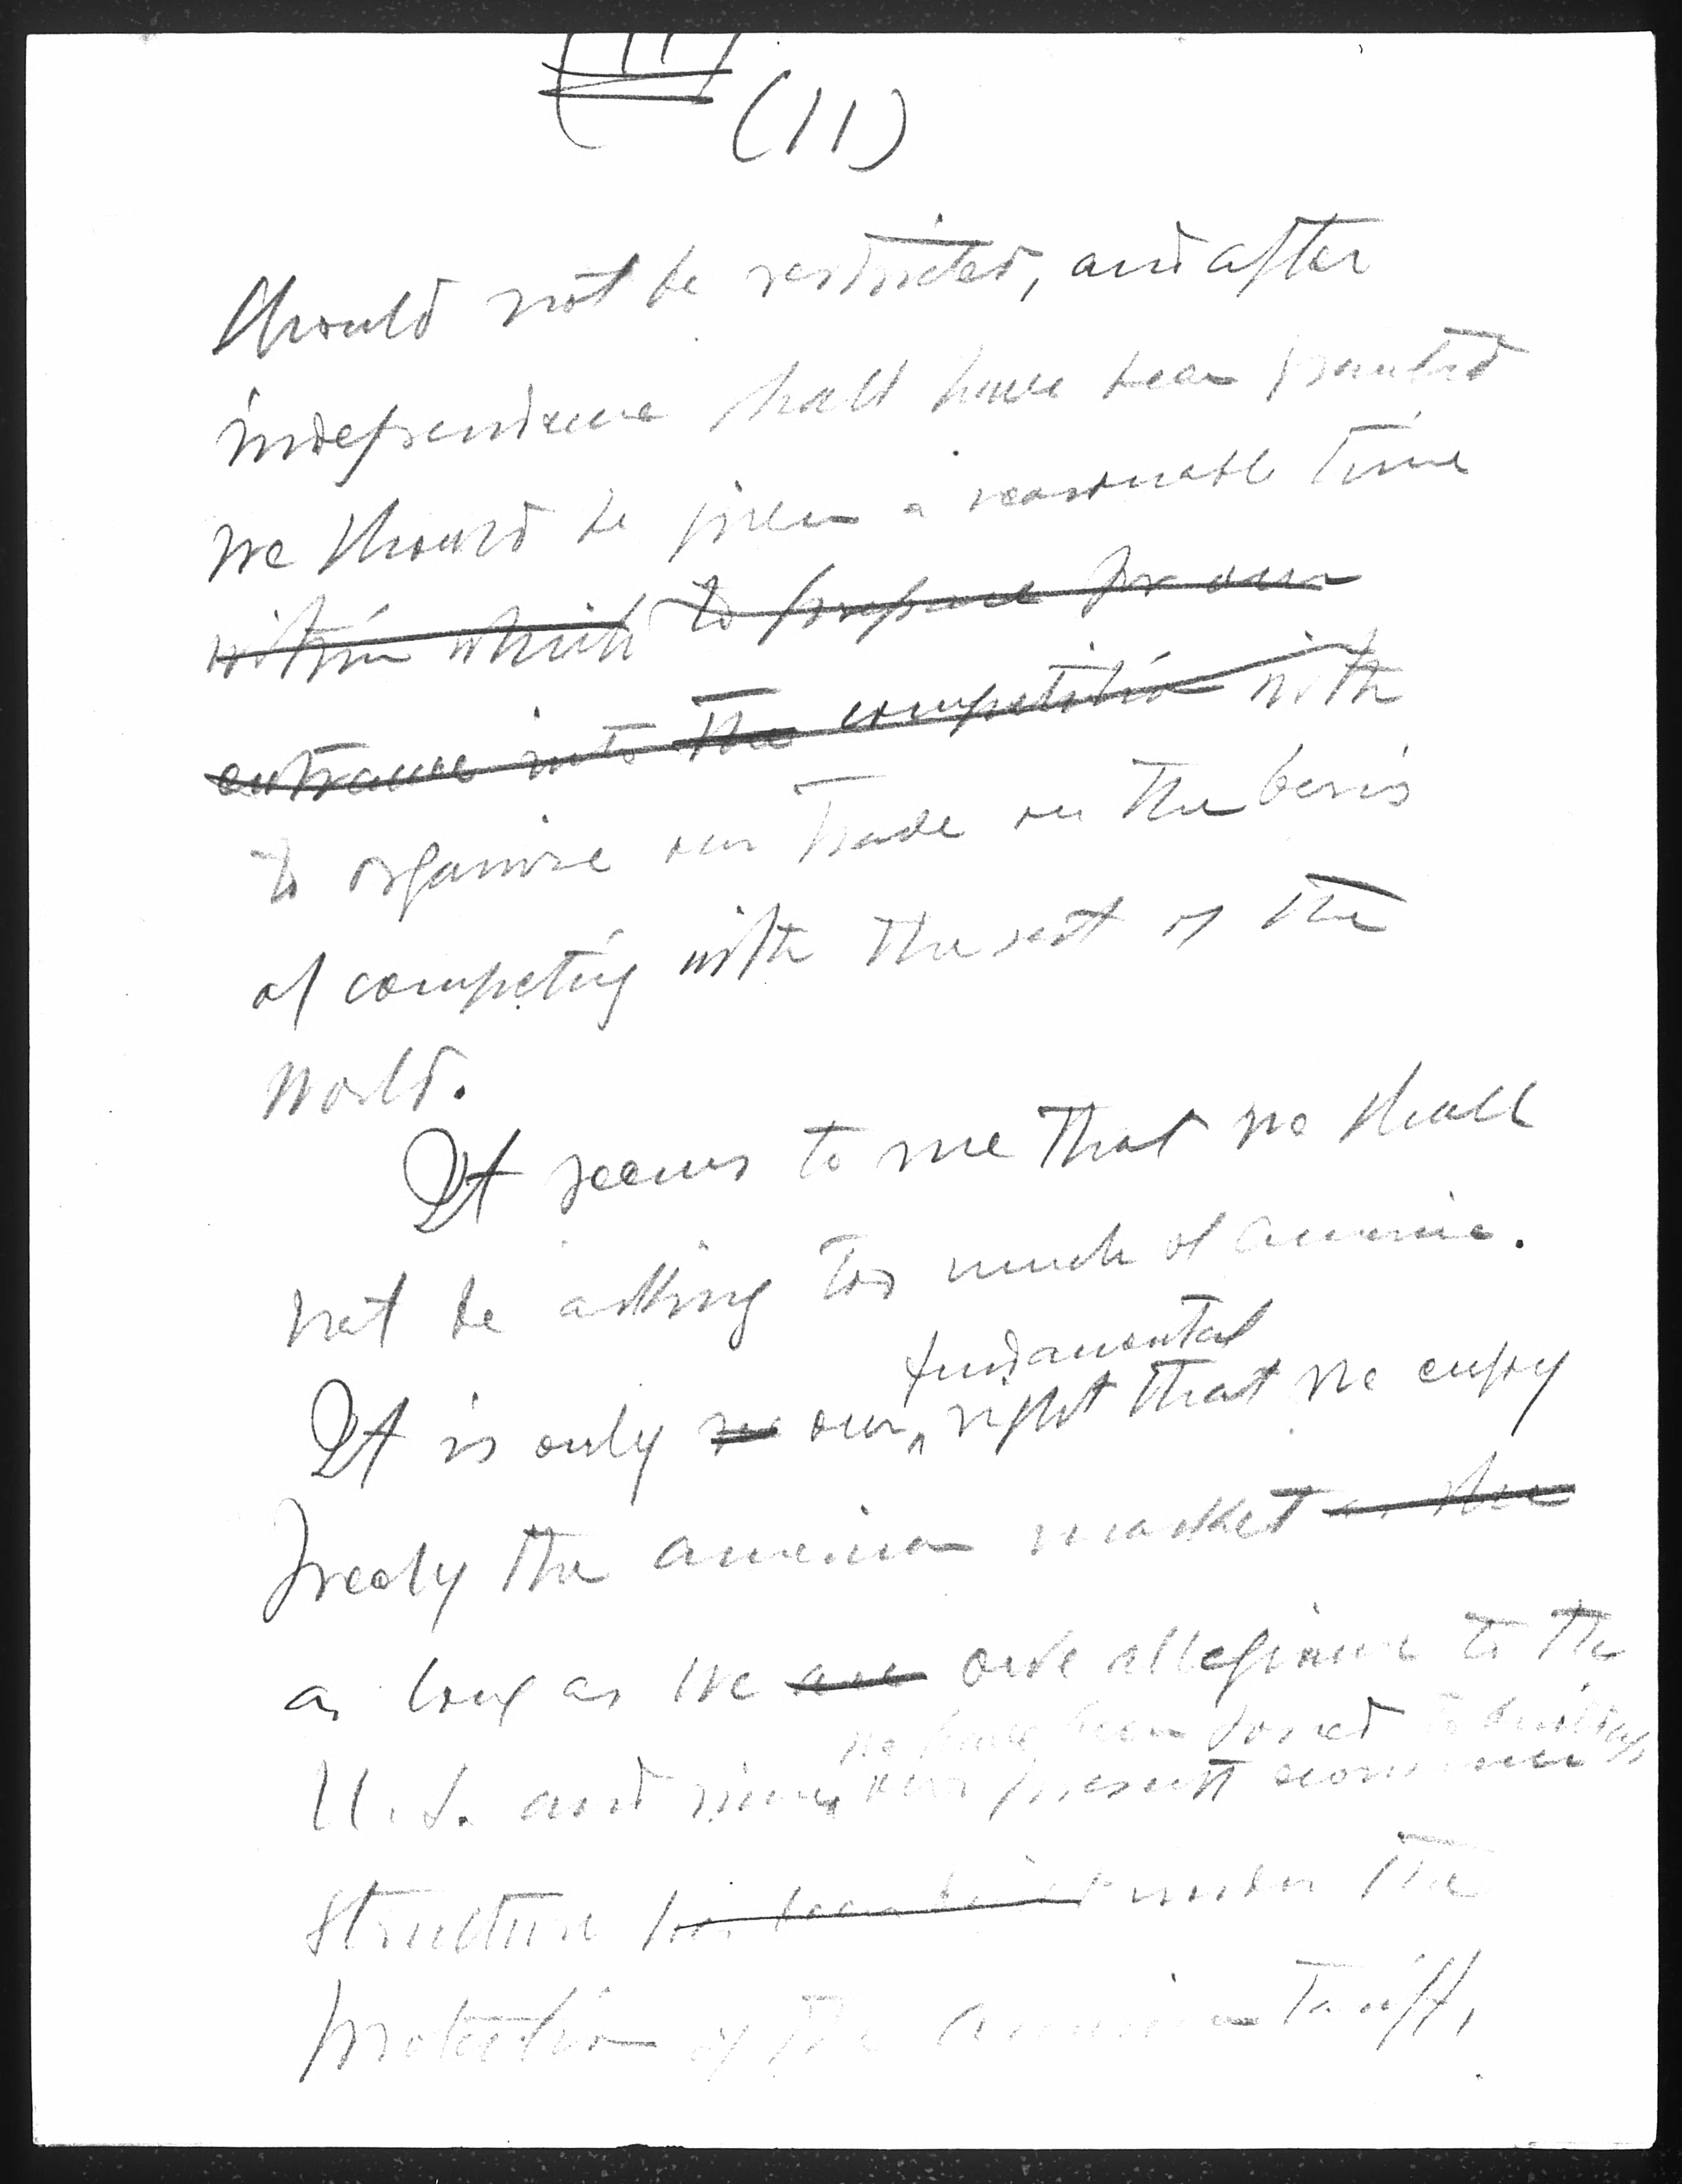 (11)
(11)
should not be restricted, and after
independence shall have been granted
we should be given a reasonable time
within which to prepare for our
entrance into the competition with
to organize our trade on the basis
of competing with the rest of the
world.
It seems to me that we shall
not be asking too much of America.
fundamental
It is only our right that we enjoy
freely the American market as the
as long as we are owe allegiance to the
we have been forced to build up
U.S. and since our present economic
structure has been built under the
protection of the American tariff,